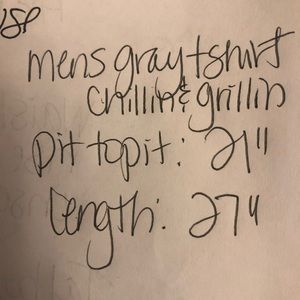 mens gray tshirt
chillin & grillin
pit to pit: 21"
Length: 27"